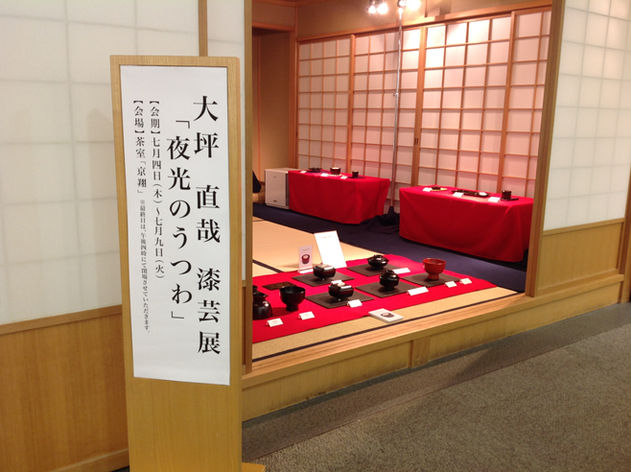 大坪 直哉 漆芸展
「夜光のうつわ」
【会期】七月四日(木)～七月九日(火)
【会場】茶室「京翔」
※最終日は、午後四時にて閉場させていただきます。